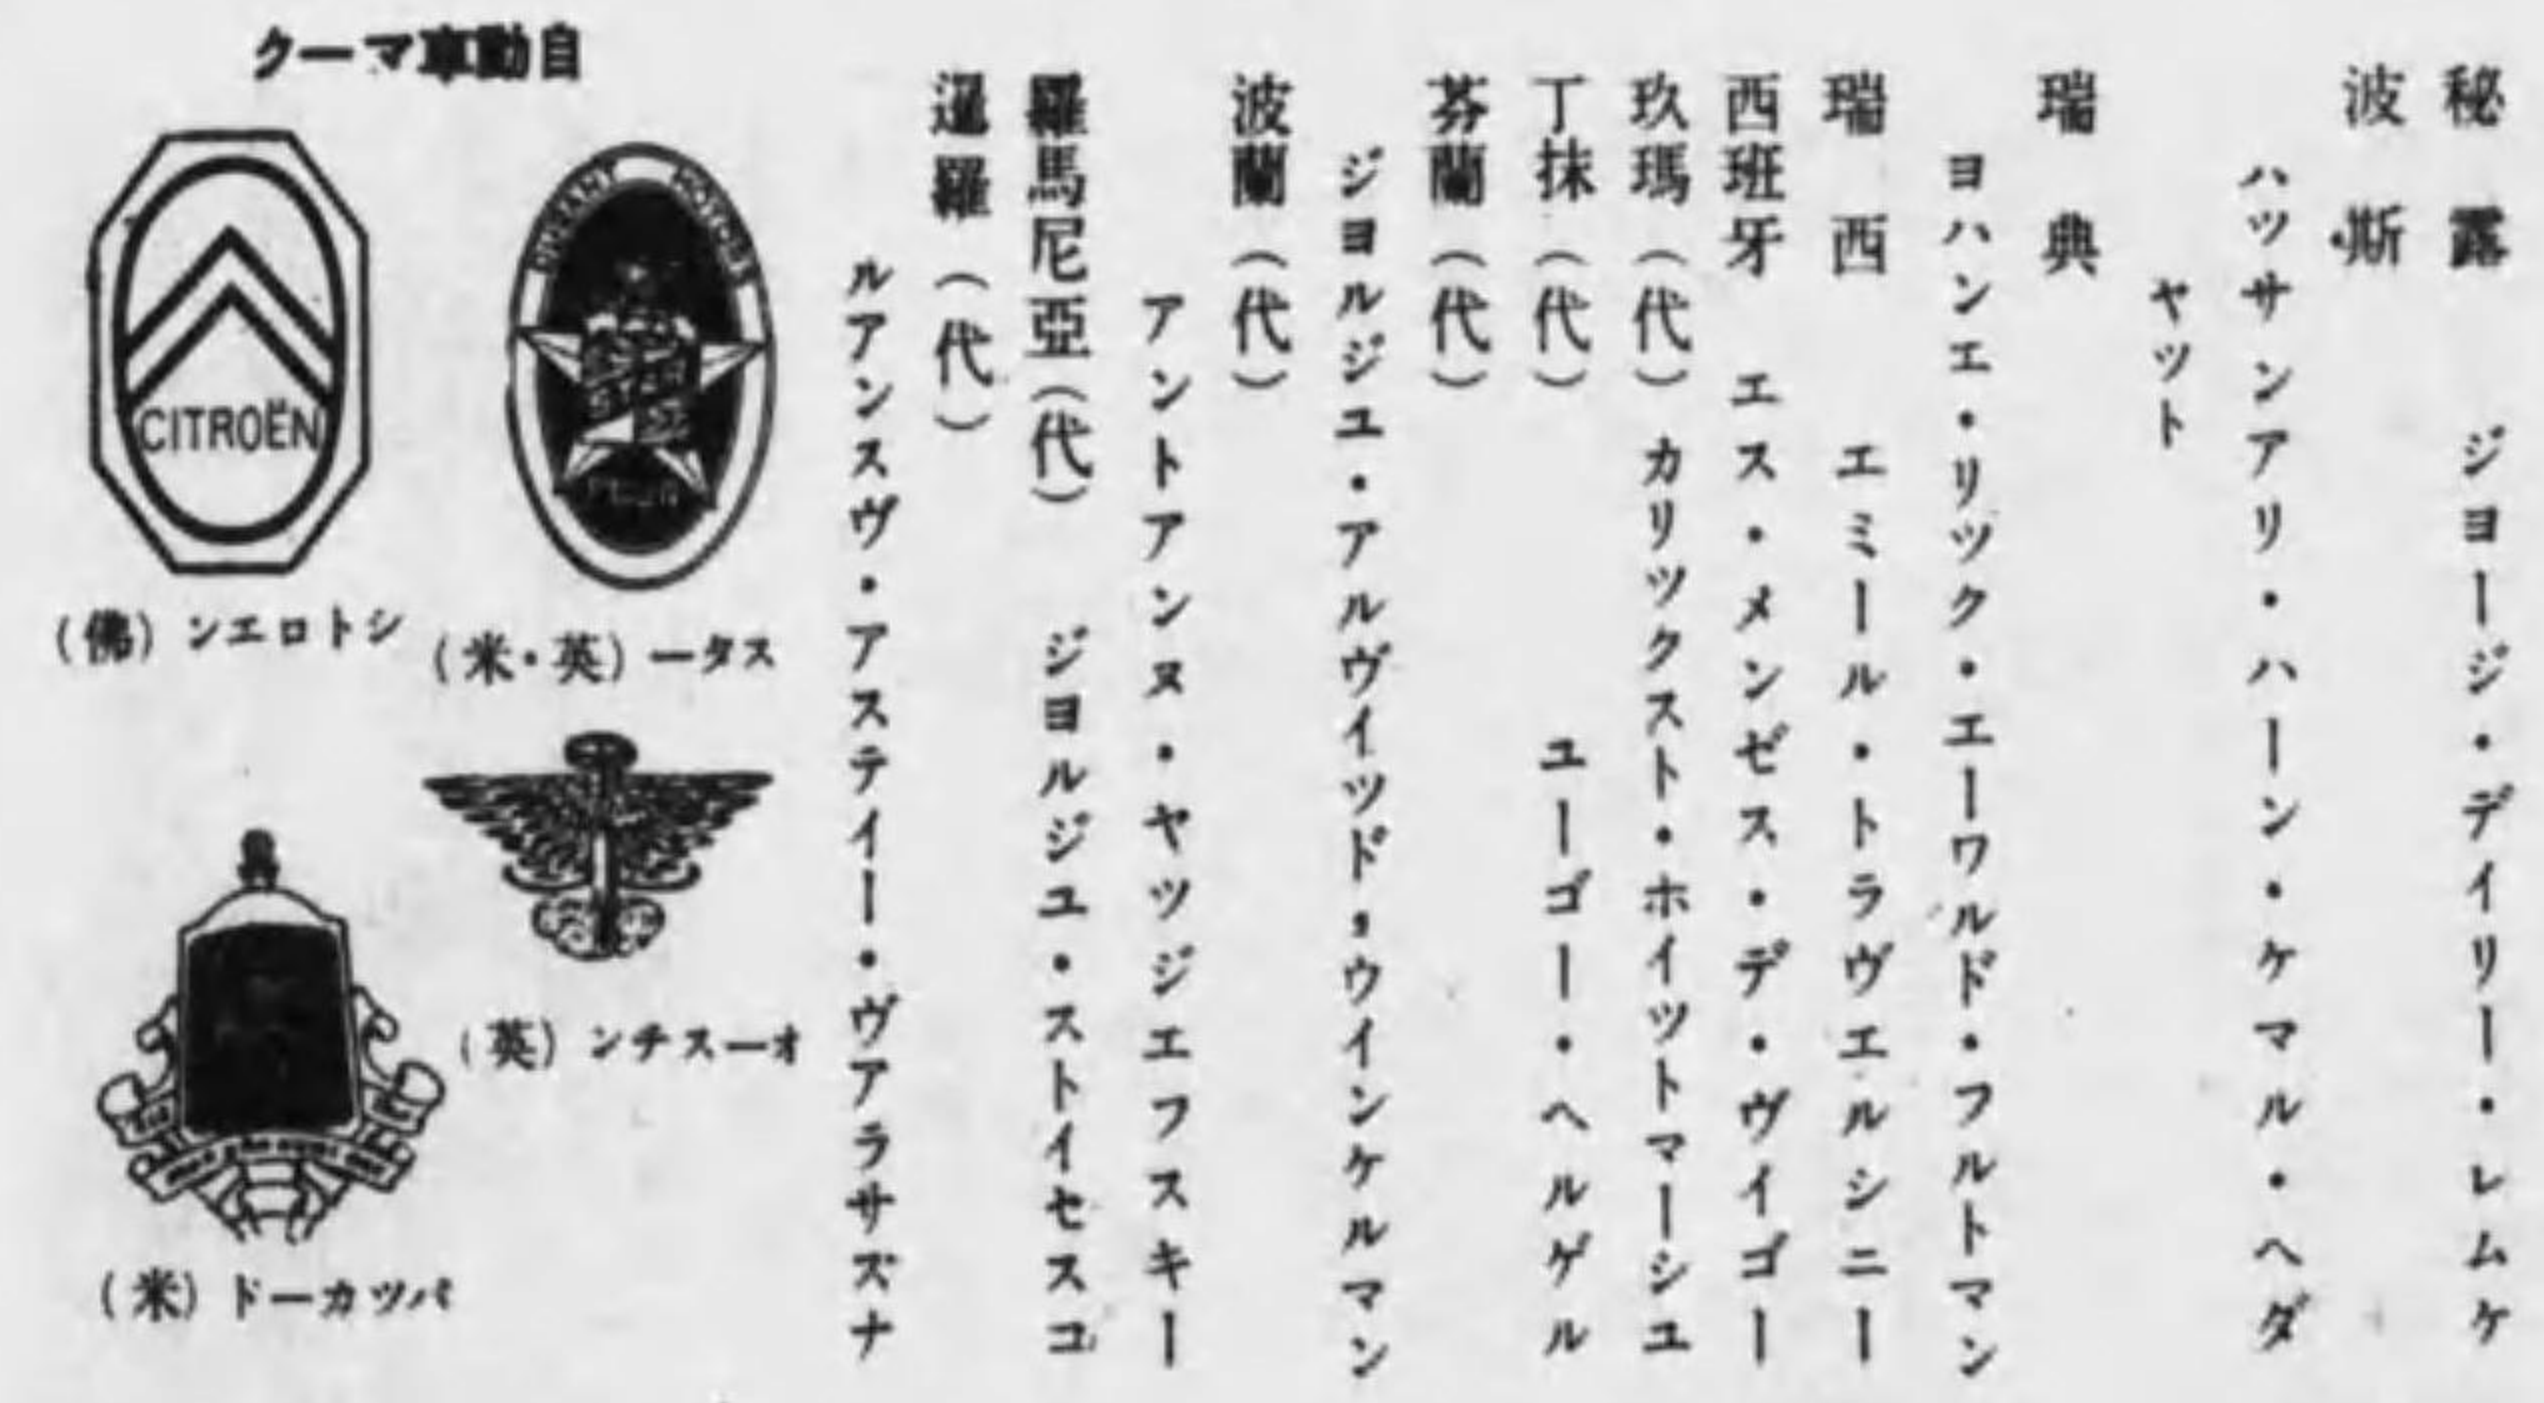 秘露 ジヨージ・デイリー・レムケ
波斯
ハッサンアリ・ハーン・ケマル・ヘダ
ヤット
瑞典
ヨハンエ・リツク・エーワルド・フルトマン
瑞西 エミール・トラヴエルシニー
西班牙 エス・メンゼス・デ・ヴイゴー
玖瑪(代) カリツクスト・ホイツトマーシユ
丁抹(代) ユーゴー・ヘルゲル
芬蘭(代)
ジヨルジユ・アルヴイツド・ウインケルマン
波蘭(代)
アントアンヌ・ヤツジエフスキー
羅馬尼亞(代) ジヨルジユ・ストイセスコ
暹羅(代)
ルアンスヴ・アステイー・ヴアラサズナ
自動車マーク
DURANT MOTORS
スター(英・米)
CITROËN
シトロエン(佛)
オースチン(英)
パツカード(米)